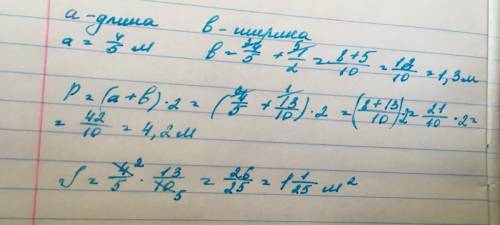 а-длина в-ширина
а = 4/5 м в = 4/5 + 1/2 = 8+5/10 = 13/10 = 1,3 м
P = (а+в)·2 = (4/5 + 13/10)·2 = (8+13/10)·2 = 21/10 · 2 =
= 42/10 = 4,2 м
S = 4/5 · 13/10 = 26/25 = 1 1/25 м²